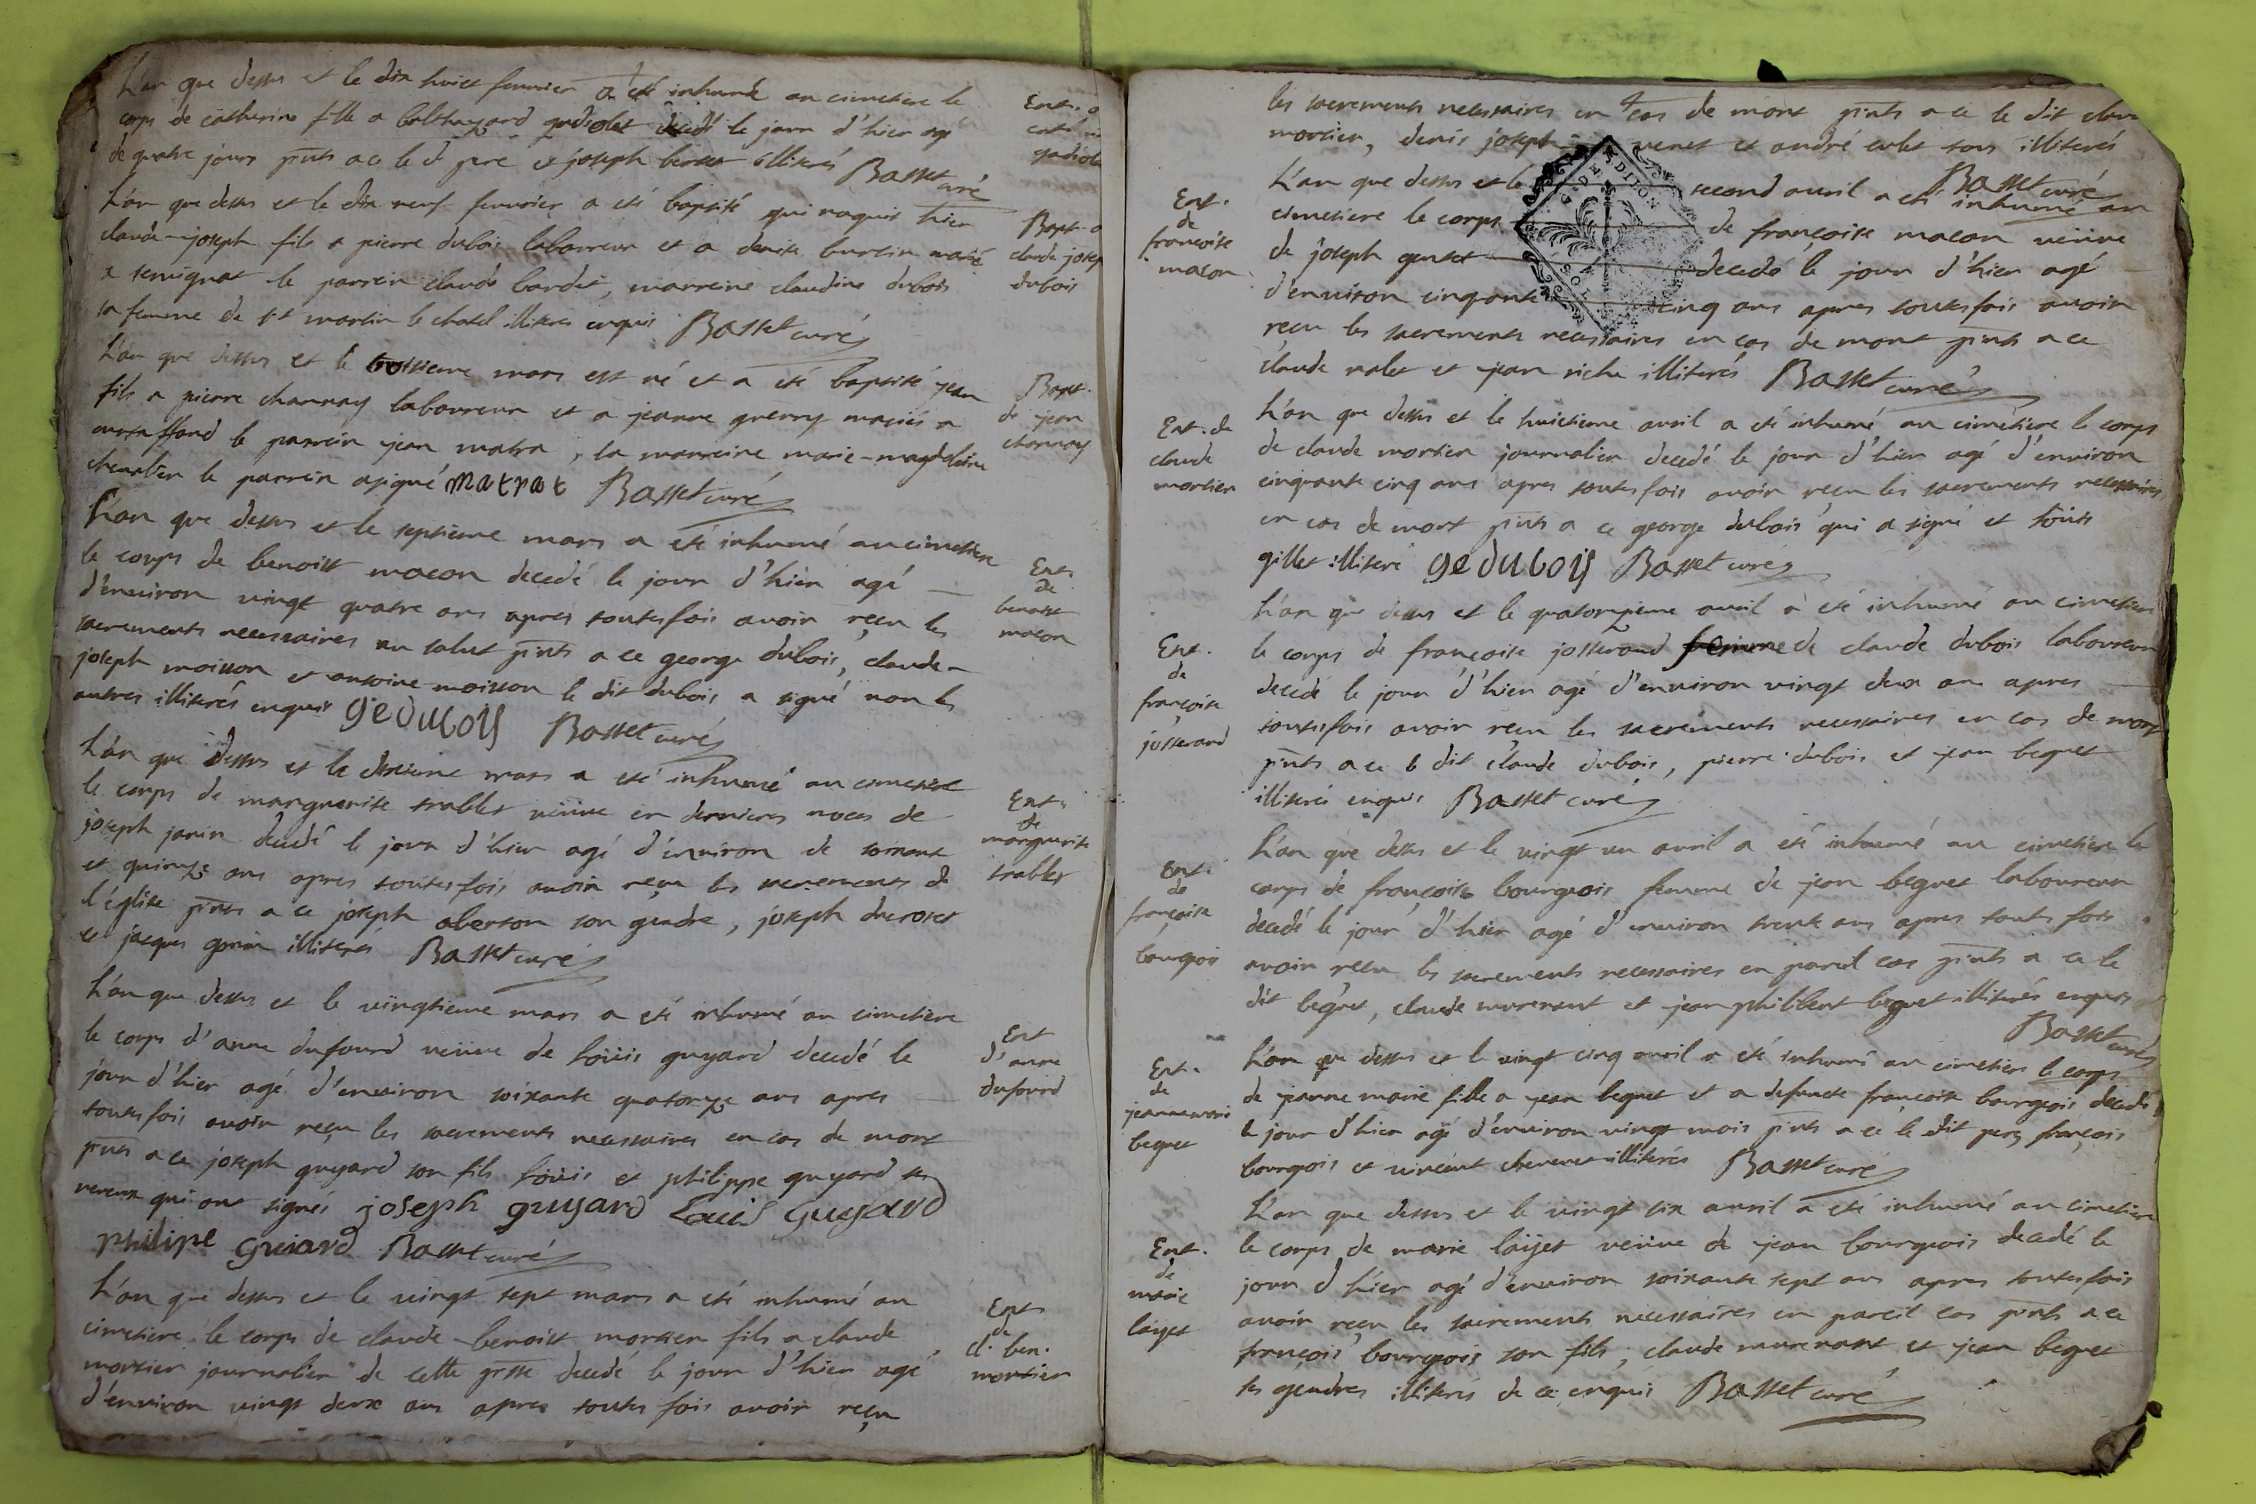 L'an que dessus et le dix huict feuvrier a eté inhumé au cimetiere le
corps de catherine fille a balthazard gadiolet decedé le jour d'hier agé
de quatre jours pnts a ce le d pere et joseph illiterés Basset curé
Ent.
L'an que dessus et le dix neuf feuvrier a eté baptisé qui naquit hier
claude-joseph fils a pierre dubois laboureur et a denise burtin marié
a senignat le parrein claude bardet, marreine claudine dubois
sa femme de st martin le chatel illiteres enquis Basset curé
Bapt.
claude josep
dubois
L'an que dessus et le troisieme mars est né et a eté baptisé jean
fils a pierre charnay laboureur et a jeanne guerry mariés a
le parrein jean matra, la marreine marie-magdelaine
chevalier le parrein a signé matrat Basset curé
Bapt.
de jean
charnay
L'an que dessus et le septieme mars a eté inhumé au cimetiere
le corps de benoist macon decedé le jour d'hier agé
d'environ vingt quatre ans apres toutesfois avoir reçu les
sacrements necessaires au salut pnts a ce george dubois, claude-
joseph moisson et antoine moisson le dit dubois a signé non les
autres illiterés enquis ge dubois Basset curé
Ent.
de
benoist
macon
L'an que dessus et le dixieme mars a eté inhumé au cimetiere
le corps de marguerite trablet veüve en dernieres noces de
joseph janin decedé le jour d'hier agé d'environ de soixante
et quinze ans apres toutesfois avoir reçu les sacrements de
l'église pnts a ce joseph oberton son gendre, joseph ducroset
et jacques illiterés Basset curé
Ent.
de
marguerite
trablet
L'an que dessus et le vingtieme mars a eté inhumé au cimetiere
le corps d'anne dufourd veüve de loüis guyard decedé le
jour d'hier agé d'environ soixante quatorze ans apres
toutesfois avoir reçu les sacrements necessaires en cas de mort
pnts a ce joseph guyard son fils loüis et philippe guyard ses
neveux qui ont signés joseph guyard Louis Guyard
philipe guiard Basset curé
Ent
d'anne
dufourd
L'an que dessus et le vingt sept mars a eté inhumé au
cimetiere le corps de claude-benoist mortier fils a claude
mortier journalier de cette psse decedé le jour d'hier agé
d'environ vingt deux ans apres toutes fois avoir reçu
Ent
de
cl. ben.
mortier
les sacrements necessaires en cas de mort pnts a ce le dit claude
mortier, denis joseph venet et andré tous illiterés
Basset curé
L'an que dessus et le second avril a eté inhumé au
cimetiere le corps de françoise macon veüve
de joseph decedé le jour d'hier agé
d'environ cinquante cinq ans apres toutesfois avoir
reçu les sacrements necessaires en cas de mort pnts a ce
claude valet et jean riche illiterés Basset curé
Ent.
de
françoise
macon
L'an que dessus et le huictieme avril a eté inhumé au cimetiere le corps
de claude mortier journalier decedé le jour d'hier agé d'environ
cinquante cinq ans apres toutesfois avoir reçu les sacrements necessaires
en cas de mort pnts a ce george dubois qui a signé et loüis
gillet illiteré ge dubois Basset curé
Ent. de
claude
mortier
L'an que dessus et le quatorzieme avril a eté inhumé au cimetiere
le corps de françoise josserand femme de claude dubois laboureur
decedé le jour d'hier agé d'environ vingt deux ans apres
toutesfois avoir reçu les sacrements necessaires en cas de mort
pnts a ce le dit claude dubois, pierre dubois et jean beguet
illiterés enquis Basset curé
Ent.
de
françoise
josserand
L'an que dessus et le vingt un avril a eté inhumé au cimetiere le
corps de françoise bourgeois femme de jean beguet laboureur
decedé le jour d'hier agé d'environ trente ans apres toutes fois
avoir reçu les sacrements necessaires en pareil cas pnts a ce le
dit beguet, claude morenant et jean philibert beguet illiterés enquis
Basset curé
Ent.
de
françoise
bourgeois
L'an que dessus et le vingt cinq avril a eté inhumé au cimetiere le corps
de jeanne marie fille a jean beguet et a defuncte françoise bourgeois decedé
le jour d'hier agé d'environ vingt mois pnts a ce le dit pere, françois
bourgeois et vincent chevenet illiterés Basset curé
Ent.
de
jeanne marie
beguet
L'an que dessus et le vingt six avril a eté inhumé au cimetiere
le corps de marie laÿet veüve de jean bourgeois decedé le
jour d'hier agé d'environ soixante sept ans apres toutesfois
avoir reçu les sacrements necessaires en pareil cas pnts a ce
françois bourgeois son fils, claude morenant et jean beguet
ses gendres illiterés de ce enquis Basset curé
Ent.
de
marie
laÿet